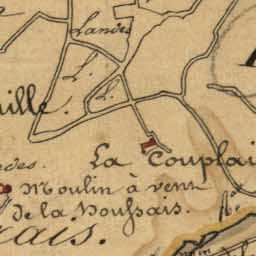 Landes
L. L.
ille.
La Couplai
des.
Moulin à vent
de la houssais.
ais.